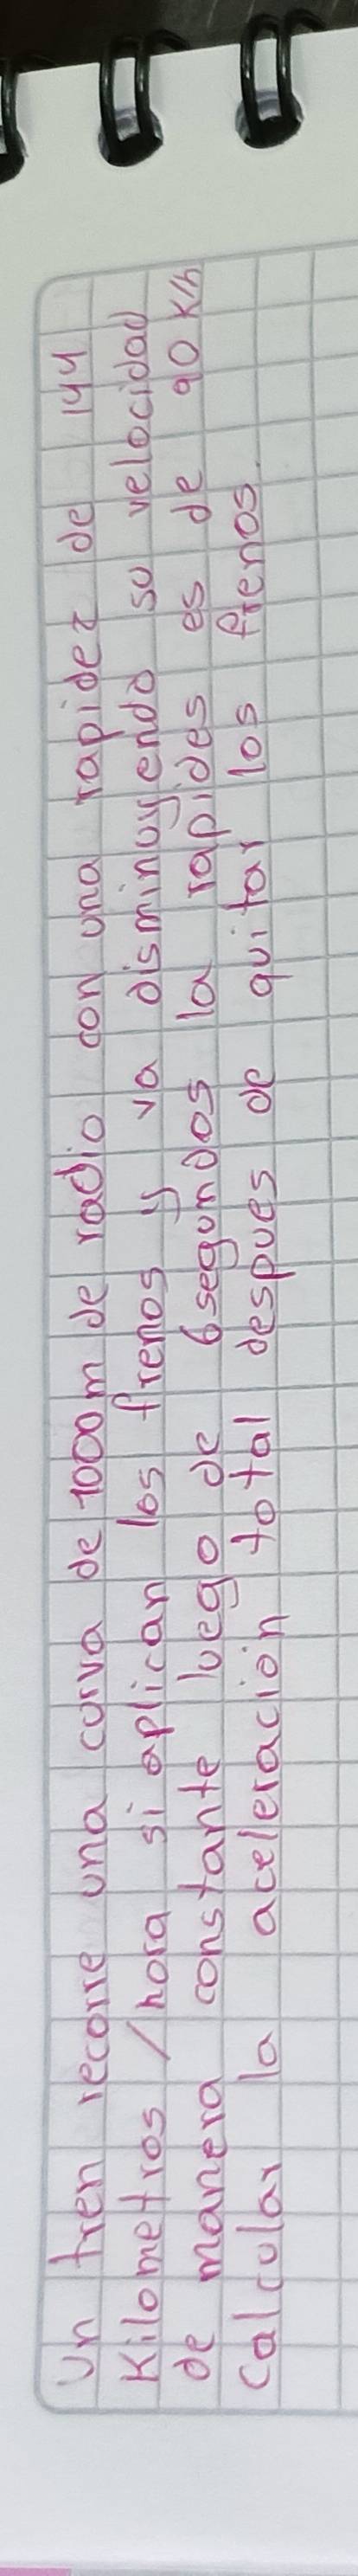 Un tren recorre una curva de 1000m de radio con una rapidez de 144
Kilometros /hora si aplican los frenos y va disminuyendo su velocidad
de manera constante luego de 6 segundos la rapides es de 90 K/h
Calcular la aceleración total despues de quitar los frenos.